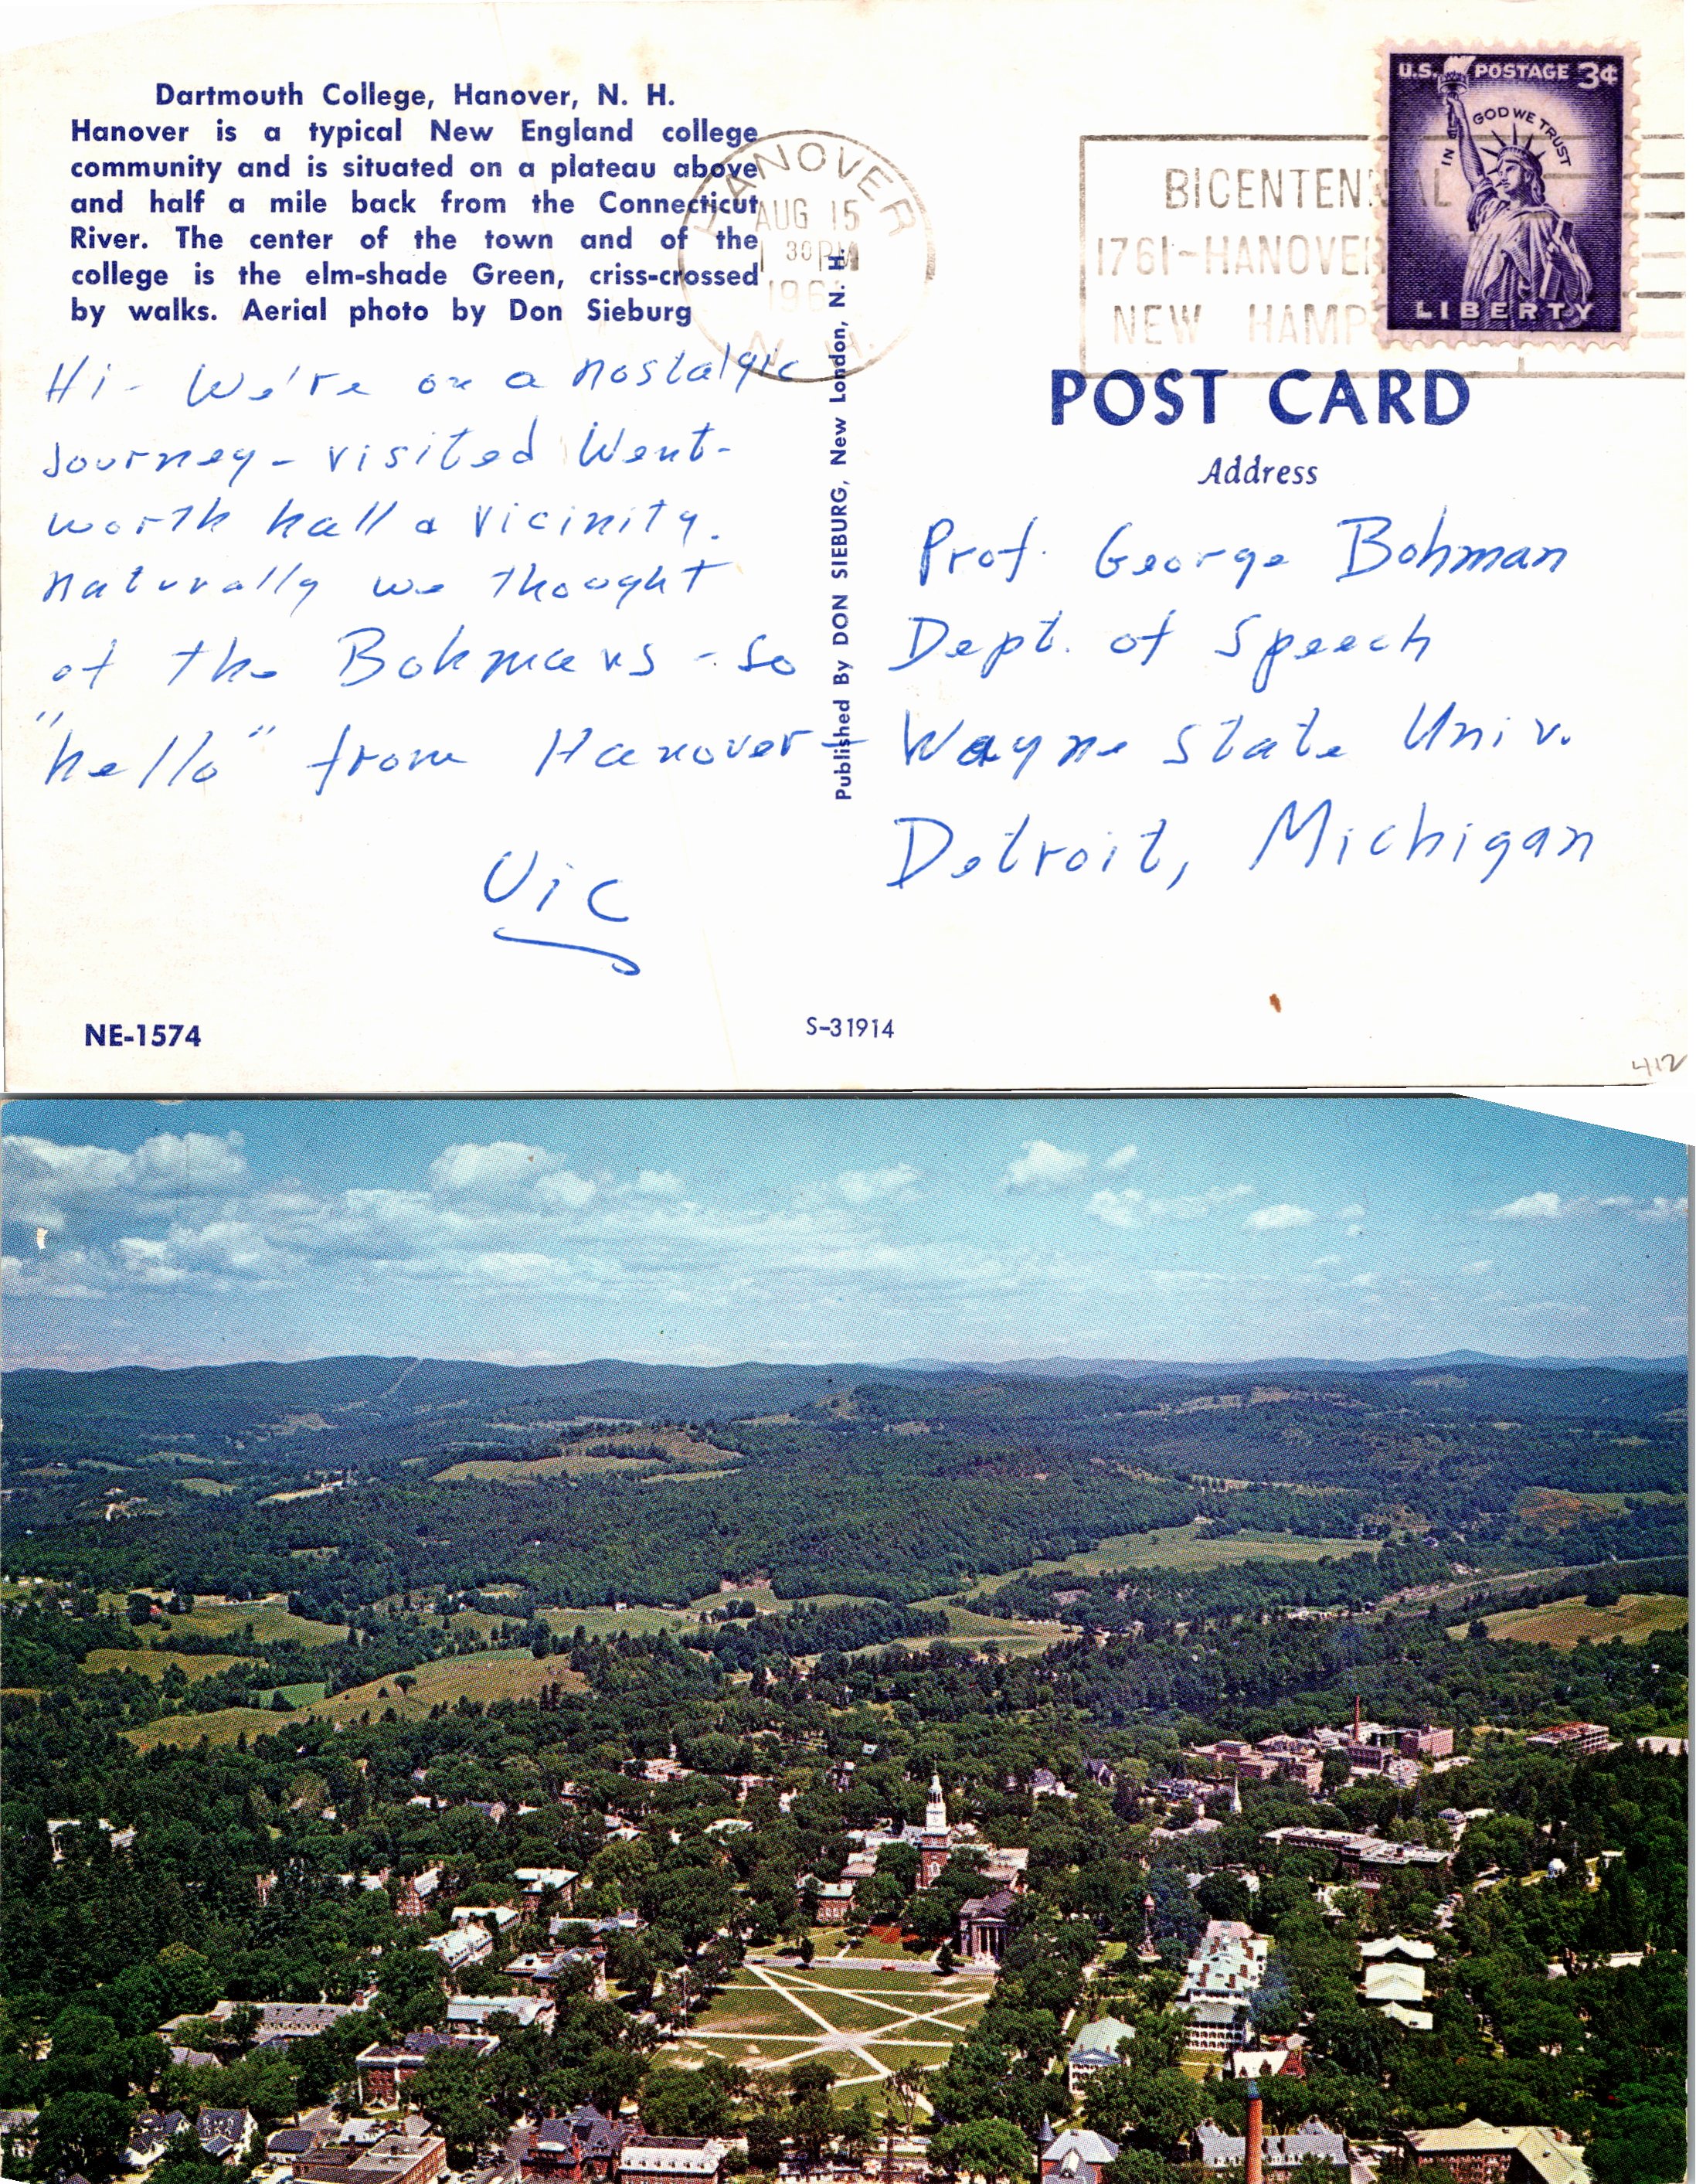 Dartmouth College, Hanover, N. H.
Hanover is a typical New England college
community and is situated on a plateau above
and half a mile back from the Connecticut
River. The center of the town and of the
college is the elm-shade Green, criss-crossed
by walks. Aerial photo by Don Sieburg
Hi - We're on a nostalgic
journey - visited Went-
worth hall & vicinity.
naturally we thought
of the Bohmans - so
"hello" from Hanover -
Vic
NE-1574
HANOVER
AUG 15
30 PM
196
N. H.
Published By DON SIEBURG, New London, N. H.
S-31914
BICENTENNIAL
1761-HANOVER
NEW HAMP
U.S. POSTAGE 3¢
IN GOD WE TRUST
LIBERTY
POST CARD
Address
Prof. George Bohman
Dept. of Speech
Wayne State Univ.
Detroit, Michigan
412